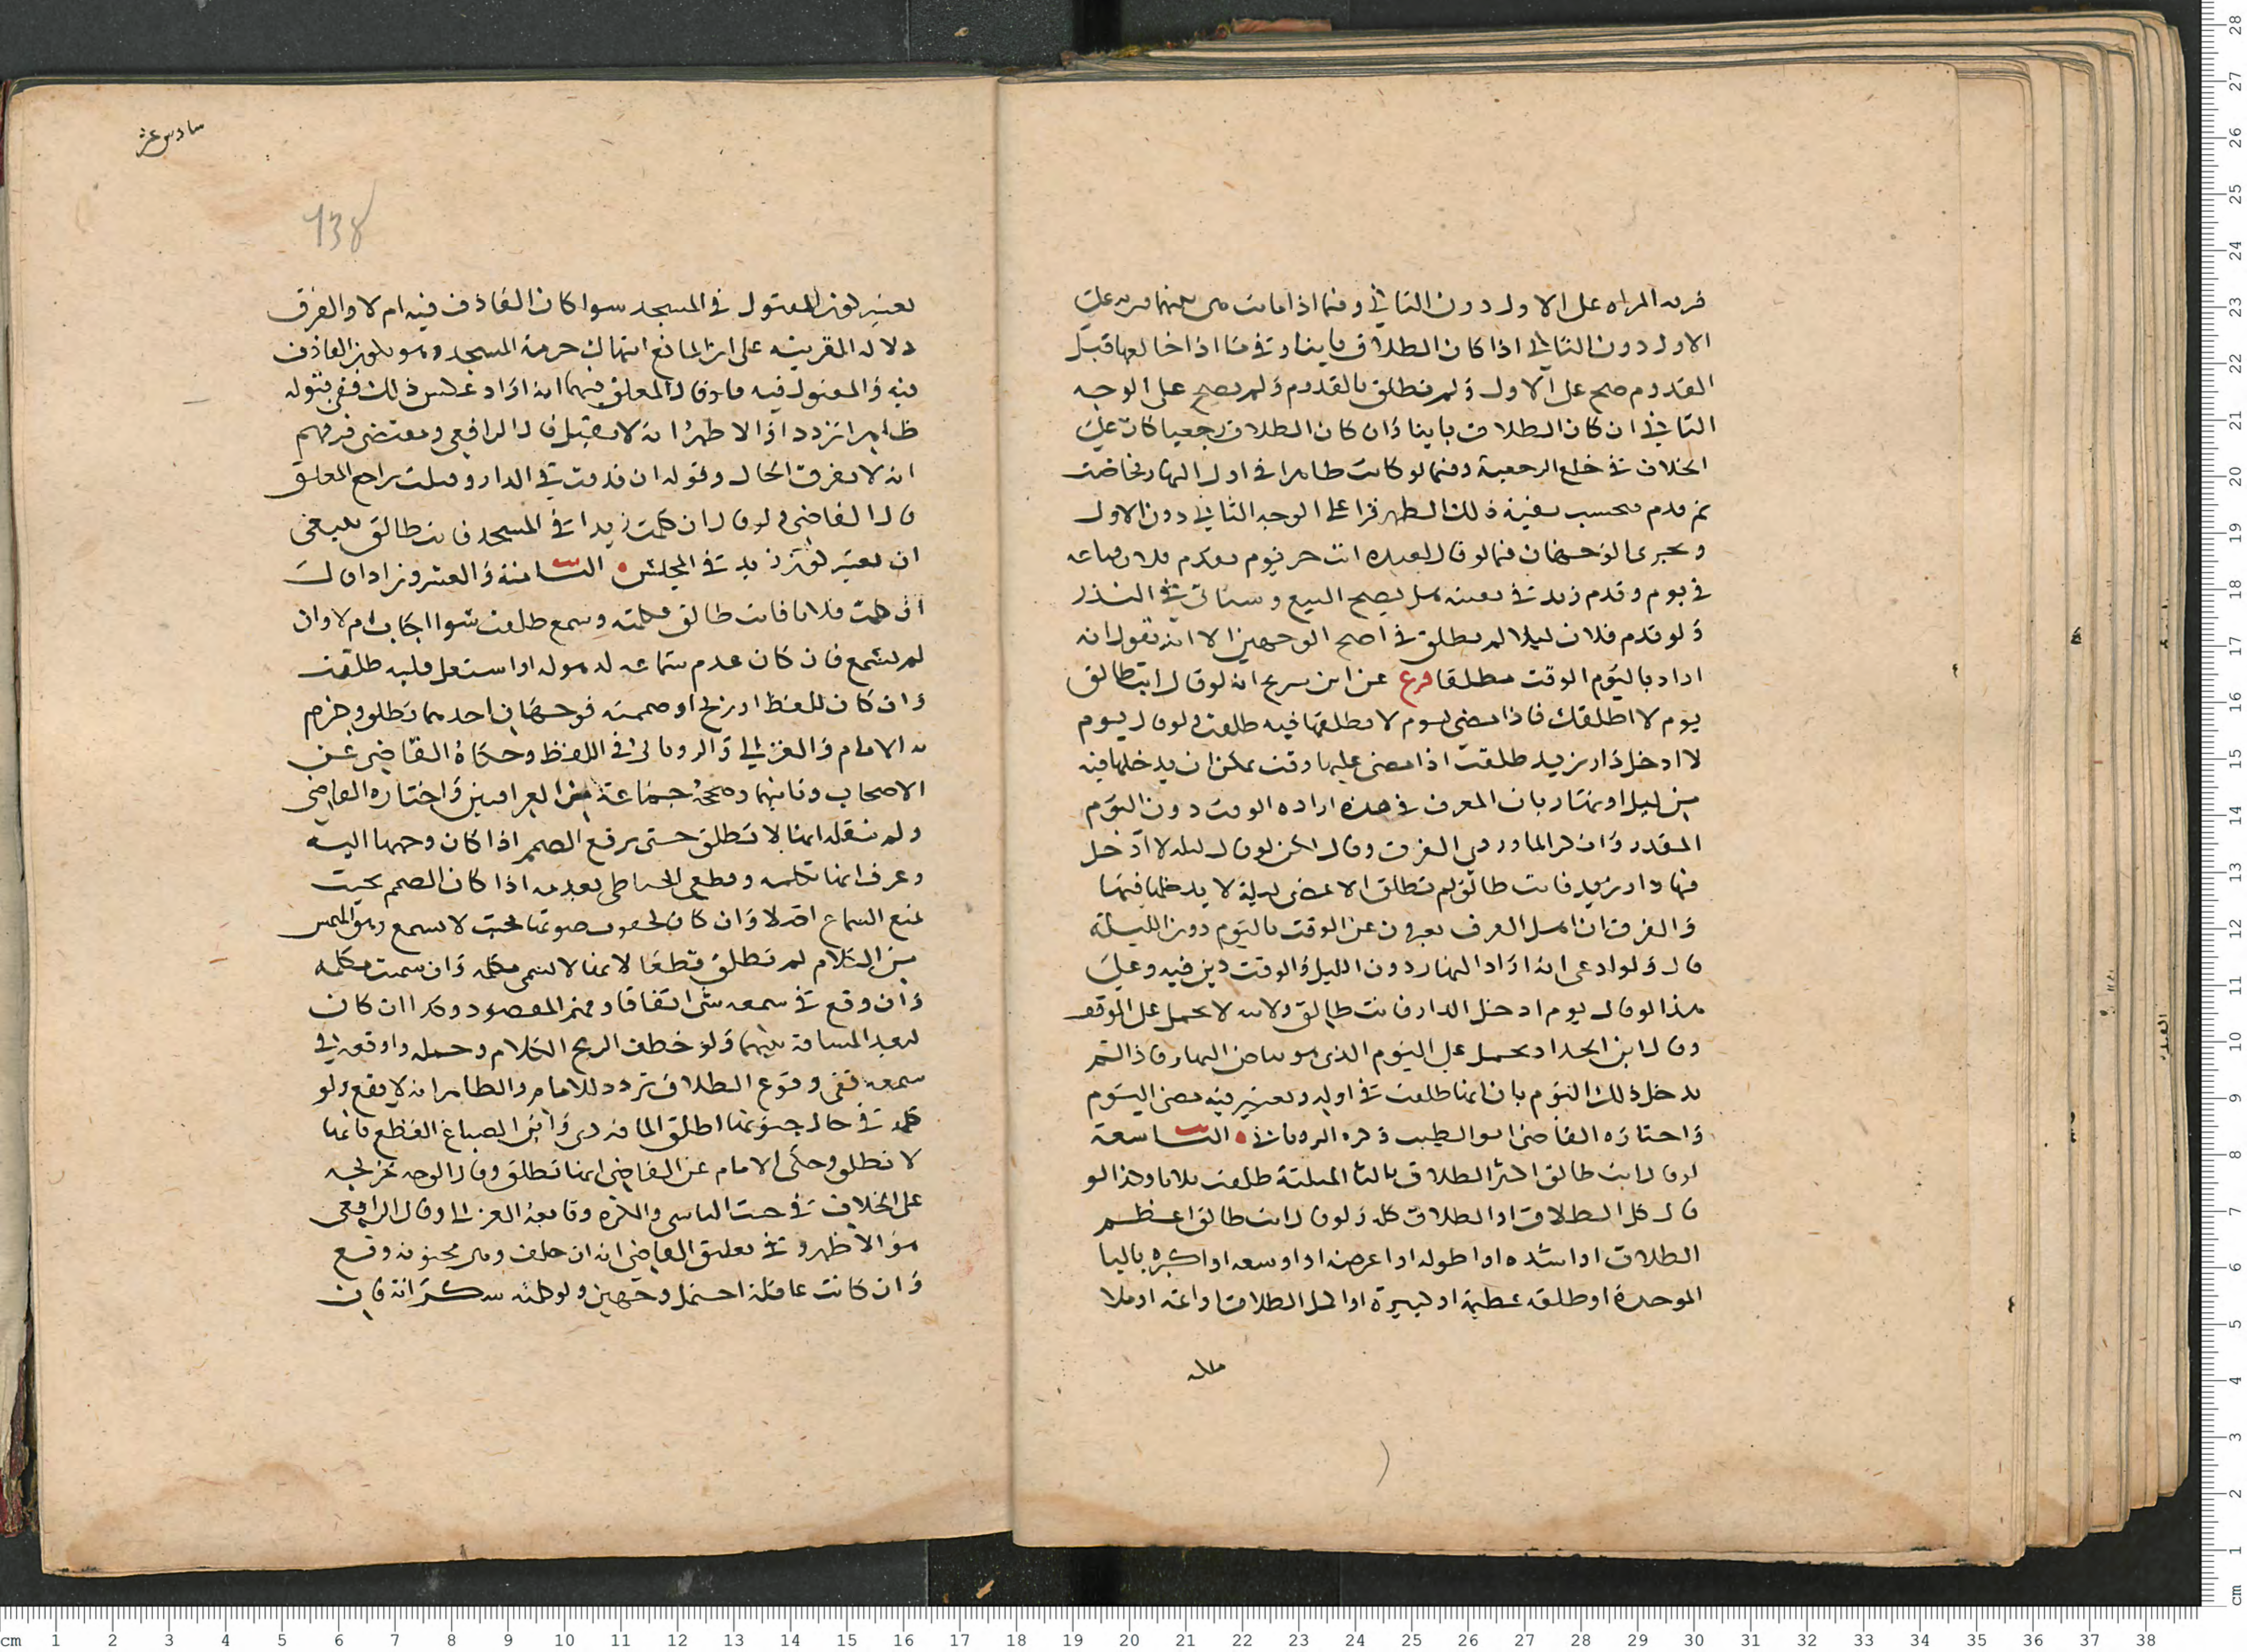 المراه على الاول دون الثاني وفيما اذا ماتت
الاول دون الثاني اذا كان الطلاق باينا وفيما اذا خالعها قبل
القدوم صح على الاول ولم تطلق بالقدوم ولم يصح على الوجه
الثاني ان كان الطلاق باينا وان كان الطلاق رجعيا كان على
الخلاف في خلع الرجعية وفيما لو كانت طاهرا في اول النهار فحاضت
ثم قدم فحسب بقية ذلك الطهر قرا على الوجه الثاني دون الاول
ويجرى الوجهان فيما لو قال لعبده انت حر يوم يقدم فلان فباعه
في يوم وقدم زيد في بقيته هل يصح البيع وسياتي في النذر
ولو قدم فلان ليلا لم تطلق في اصح الوجهين الا ان يقول انه
اراد باليوم الوقت مطلقا فرع عن ابن سريج انه لو قال انت طالق
يوم لا اطلقك فاذا مضى يوم لا يطلقها فيه طلقت ولو قال يوم
لا ادخل دار زيد طلقت اذا مضى عليها وقت يمكن ان يدخلها فيه
من ليل او نهار بان العرف في هذه اراده الوقت دون اليوم
المقدر وانكر الماوردي الفرق وقال لكن لو قال ليله لا ادخل
فيها دار زيد فانت طالق لم تطلق الا بمضي ليلة لا يدخلها فيها
والفرق ان اهل العرف يعبرون عن الوقت باليوم دون الليلة
قال ولو ادعى انه اراد النهار دون الليل والوقت دين فيه وعلى
هذا لو قال يوم ادخل الدار فانت طالق ولانيه لا يحمل على الوقت
وقال ابن الحداد يحمل على اليوم الذي هو بياض النهار فاذا لم
يدخل ذلك اليوم بان انها طلقت في اوله ويعتبر فيه مضى اليوم
واختاره القاضي ابو الطيب ذكره الروياني التاسعة
لو قال انت طالق اكثر الطلاق بالثا المثلثة طلقت ثلاثا وكذا لو
قال كل الطلاق او الطلاق كله ولو قال انت طالق اعظم
الطلاق او اشده او اطوله او اعرضه او اوسعه او اكبره بالبا
الموحدة او طلقه عظيمة او كبيرة او اكمل الطلاق او اتمه او ملا
سادس عشر
138
يعتبر كون المقتول في المسجد سوا كان القاذف فيه ام لا والفرق
دلاله القرينه على ان المانع انتهاك حرمة المسجد وهو بكون القاذف
فيه والمقتول فيه فلو قال المعلق فيهما انه اراد عكس ذلك ففي قبوله
ظاهرا تردد والاظهر انه لا يقبل قال الرافعي ومقتضى فرقهم
انه لا يفرق الحال وقوله ان قذفت في الدار وقتلت يراجع المعلق
قال القاضي ولو قال ان كلمت زيدا في المسجد فانت طالق فينبغي
ان يعتبر كون زيد في المجلس الثامنة والعشرون اذا قال
ان كلمت فلانا فانت طالق فكلمته وسمع طلقت سوا اجاب ام لا وان
لم يسمع فان كان عدم سماعه لذهوله او اشتغل قلبه طلقت
وان كان للغط او ريح او صممه فوجهان احدهما تطلق وجزم
به الامام والغزالي والروياني في اللفظ وحكاه القاضي عن
الاصحاب وثانيهما وصححه جماعة من العراقيين واختاره القاضي
ولم ينقله انها لا تطلق حتى يرفع الصمم اذا كان وجهها اليه
وعرف انها تكلمه وقطع الحناطي بعدمه اذا كان الصمم بحيث
يمنع السماع اصلا وان كان لخفض صوتها بحيث لا يسمع وهو الهمس
من الكلام لم تطلق قطعا لانها لا تسمى مكلمه وان سميت مكلمه
وان وقع في سمعه شى اتفاقا وفهم المقصود وكذا ان كان
لبعد المسافة بينهما ولو خطف الريح الكلام وحمله واوقعه في
سمعه ففي وقوع الطلاق تردد للامام والظاهر انه لا يقع ولو
كلمه في حال جنونها اطلق الماوردي وابن الصباغ القطع بانها
لا تطلق وحكى الامام عن القاضي انها تطلق وقال الوجه تخريجه
على الخلاف في حنث الناسي والمكره وتابعه الغزالي وقال الرافعي
هو الاظهر وفي تعليق القاضي انه ان حلف وهي مجنونه وقع
وان كانت عاقلة احتمل وجهين ولو كلمته سكرانة فان